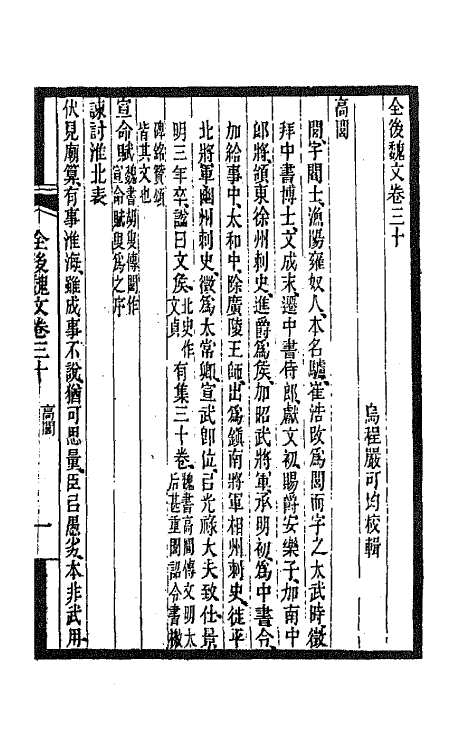 全後魏文卷三十
烏程嚴可均校輯
高閭
閭字閻士漁陽雍奴人本名驢崔浩改爲閭而字之太武時徵
拜中書博士文成末遷中書侍郎獻文初賜爵安樂子加南中
郎將領東徐州刺史進爵爲矦加昭武將軍承明初爲中書令
加給事中太和中除廣陵王師出爲鎮南將軍相州刺史徙平
北將軍幽州刺史徵爲太常卿宣武卽位㠯光祿大夫致仕景
明三年卒諡曰文矦北史作文貞有集三十卷魏書高閭傳文明太后甚重閭詔令書檄
碑銘贊頌皆其文也
宣命賦魏書胡叟傳閭作宣命賦叟爲之序
諫討淮北表
伏見廟算有事淮海雖成事不說猶可思量臣㠯愚劣本非武用
全後魏文卷三十
高閭
一